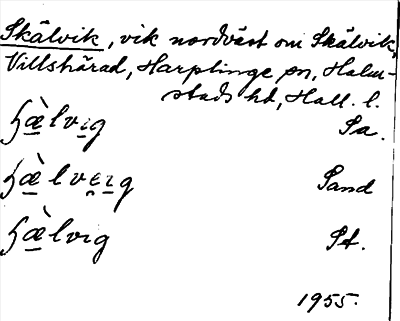 Skälvik, vik nordväst om Skälvik,
Villshärad, Harplinge sn, Halm-
stads hd, Hall. l.
ɧæ̀lvıg Sa.
ɧæ̀lvẹıg Sand
ɧæ̀lvıg St.
1955.